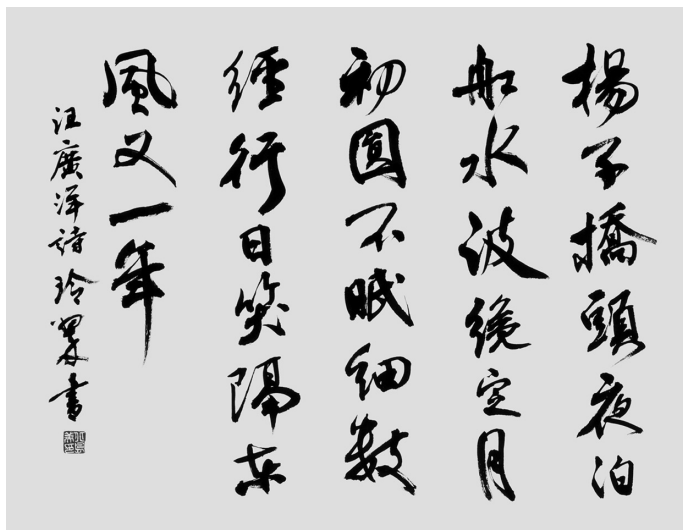 楊子橋頭夜泊
船水波纔定月
初圓不眠細數
經行日笑隔東
風又一年
汪廣洋詩玲書